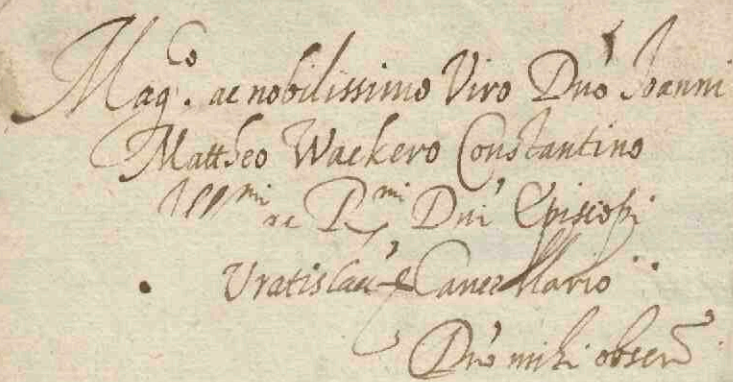 Mag.co ac nobilissimo Viro Dno Joanni
Mattheo Wackero Constantino
Illmi ac Rmi Dni Episcopi
Vratislaū Cancellario
Dno mihi obserū